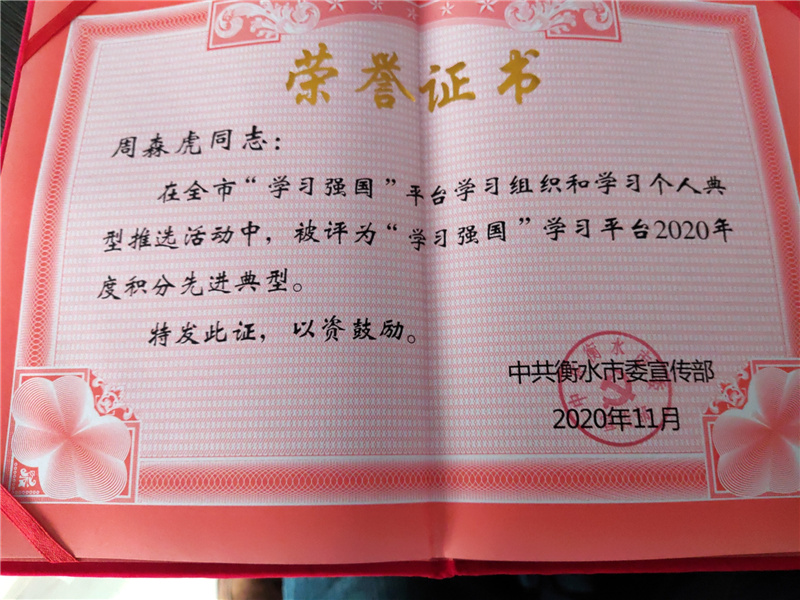 荣誉证书
周森虎同志：
在全市“学习强国”平台学习组织和学习个人典
型推选活动中，被评为“学习强国”学习平台2020年
度积分先进典型。
特发此证，以资鼓励。
中共衡水市委宣传部
2020年11月